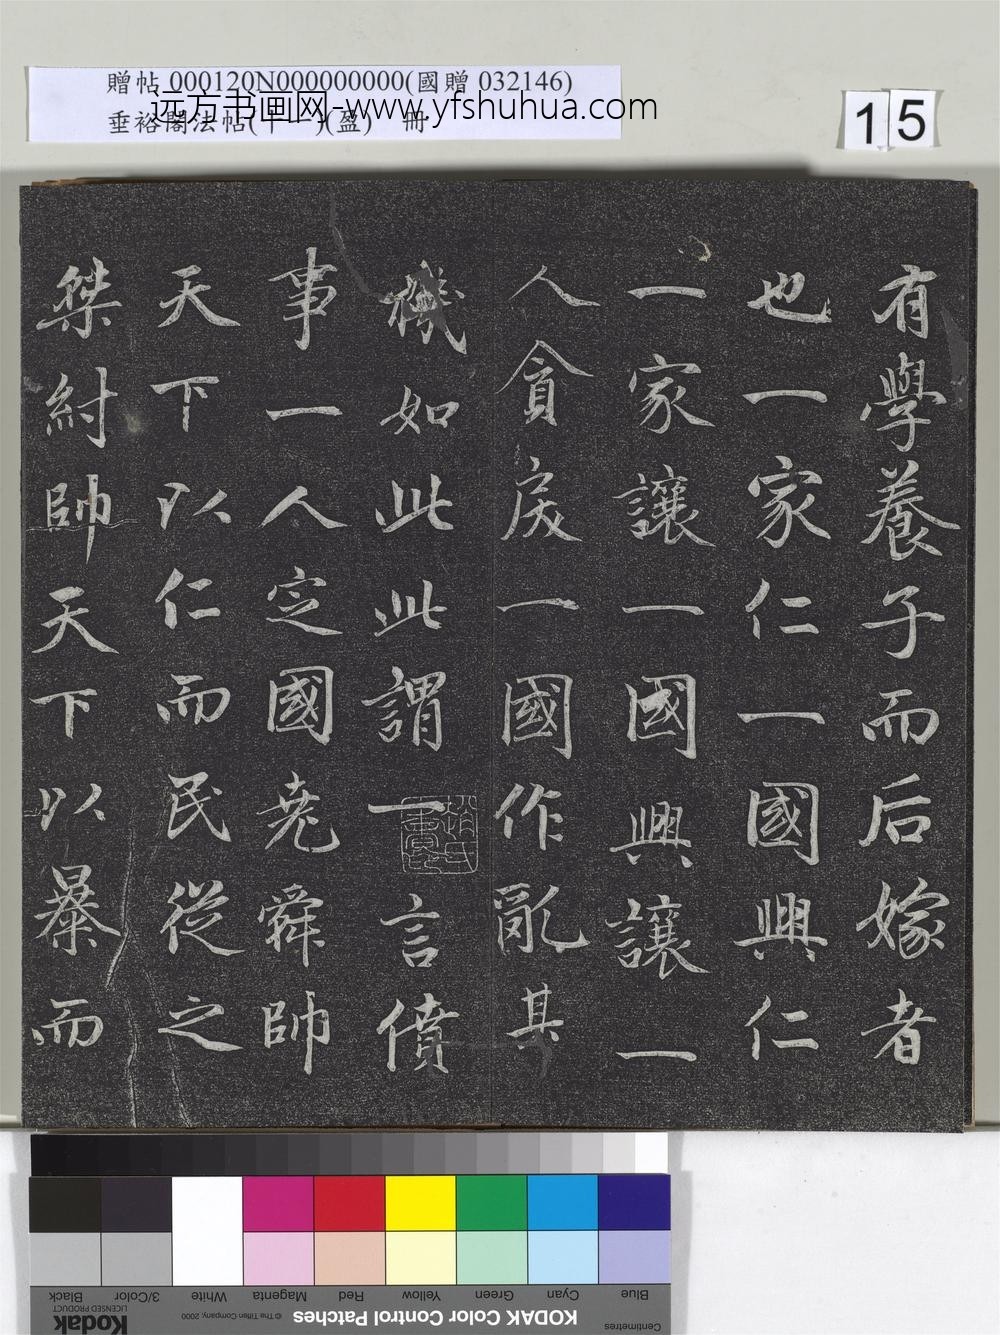 贈帖 000120N000000000(國贈 032146)
垂裕閣法帖(十一)(盈) 冊
远方书画网-www.yfshuhua.com
15
有學養子而后嫁者
也一家仁一國興仁
一家讓一國興讓一
人貪戾一國作亂其
機如此此謂一言僨
事一人定國堯舜帥
天下以仁而民從之
桀紂帥天下以暴而
Blue Cyan Green Yellow Red Magenta White 3/Color Black
Centimetres KODAK Color Control Patches © The Tiffen Company, 2000 Kodak
LICENSED PRODUCT